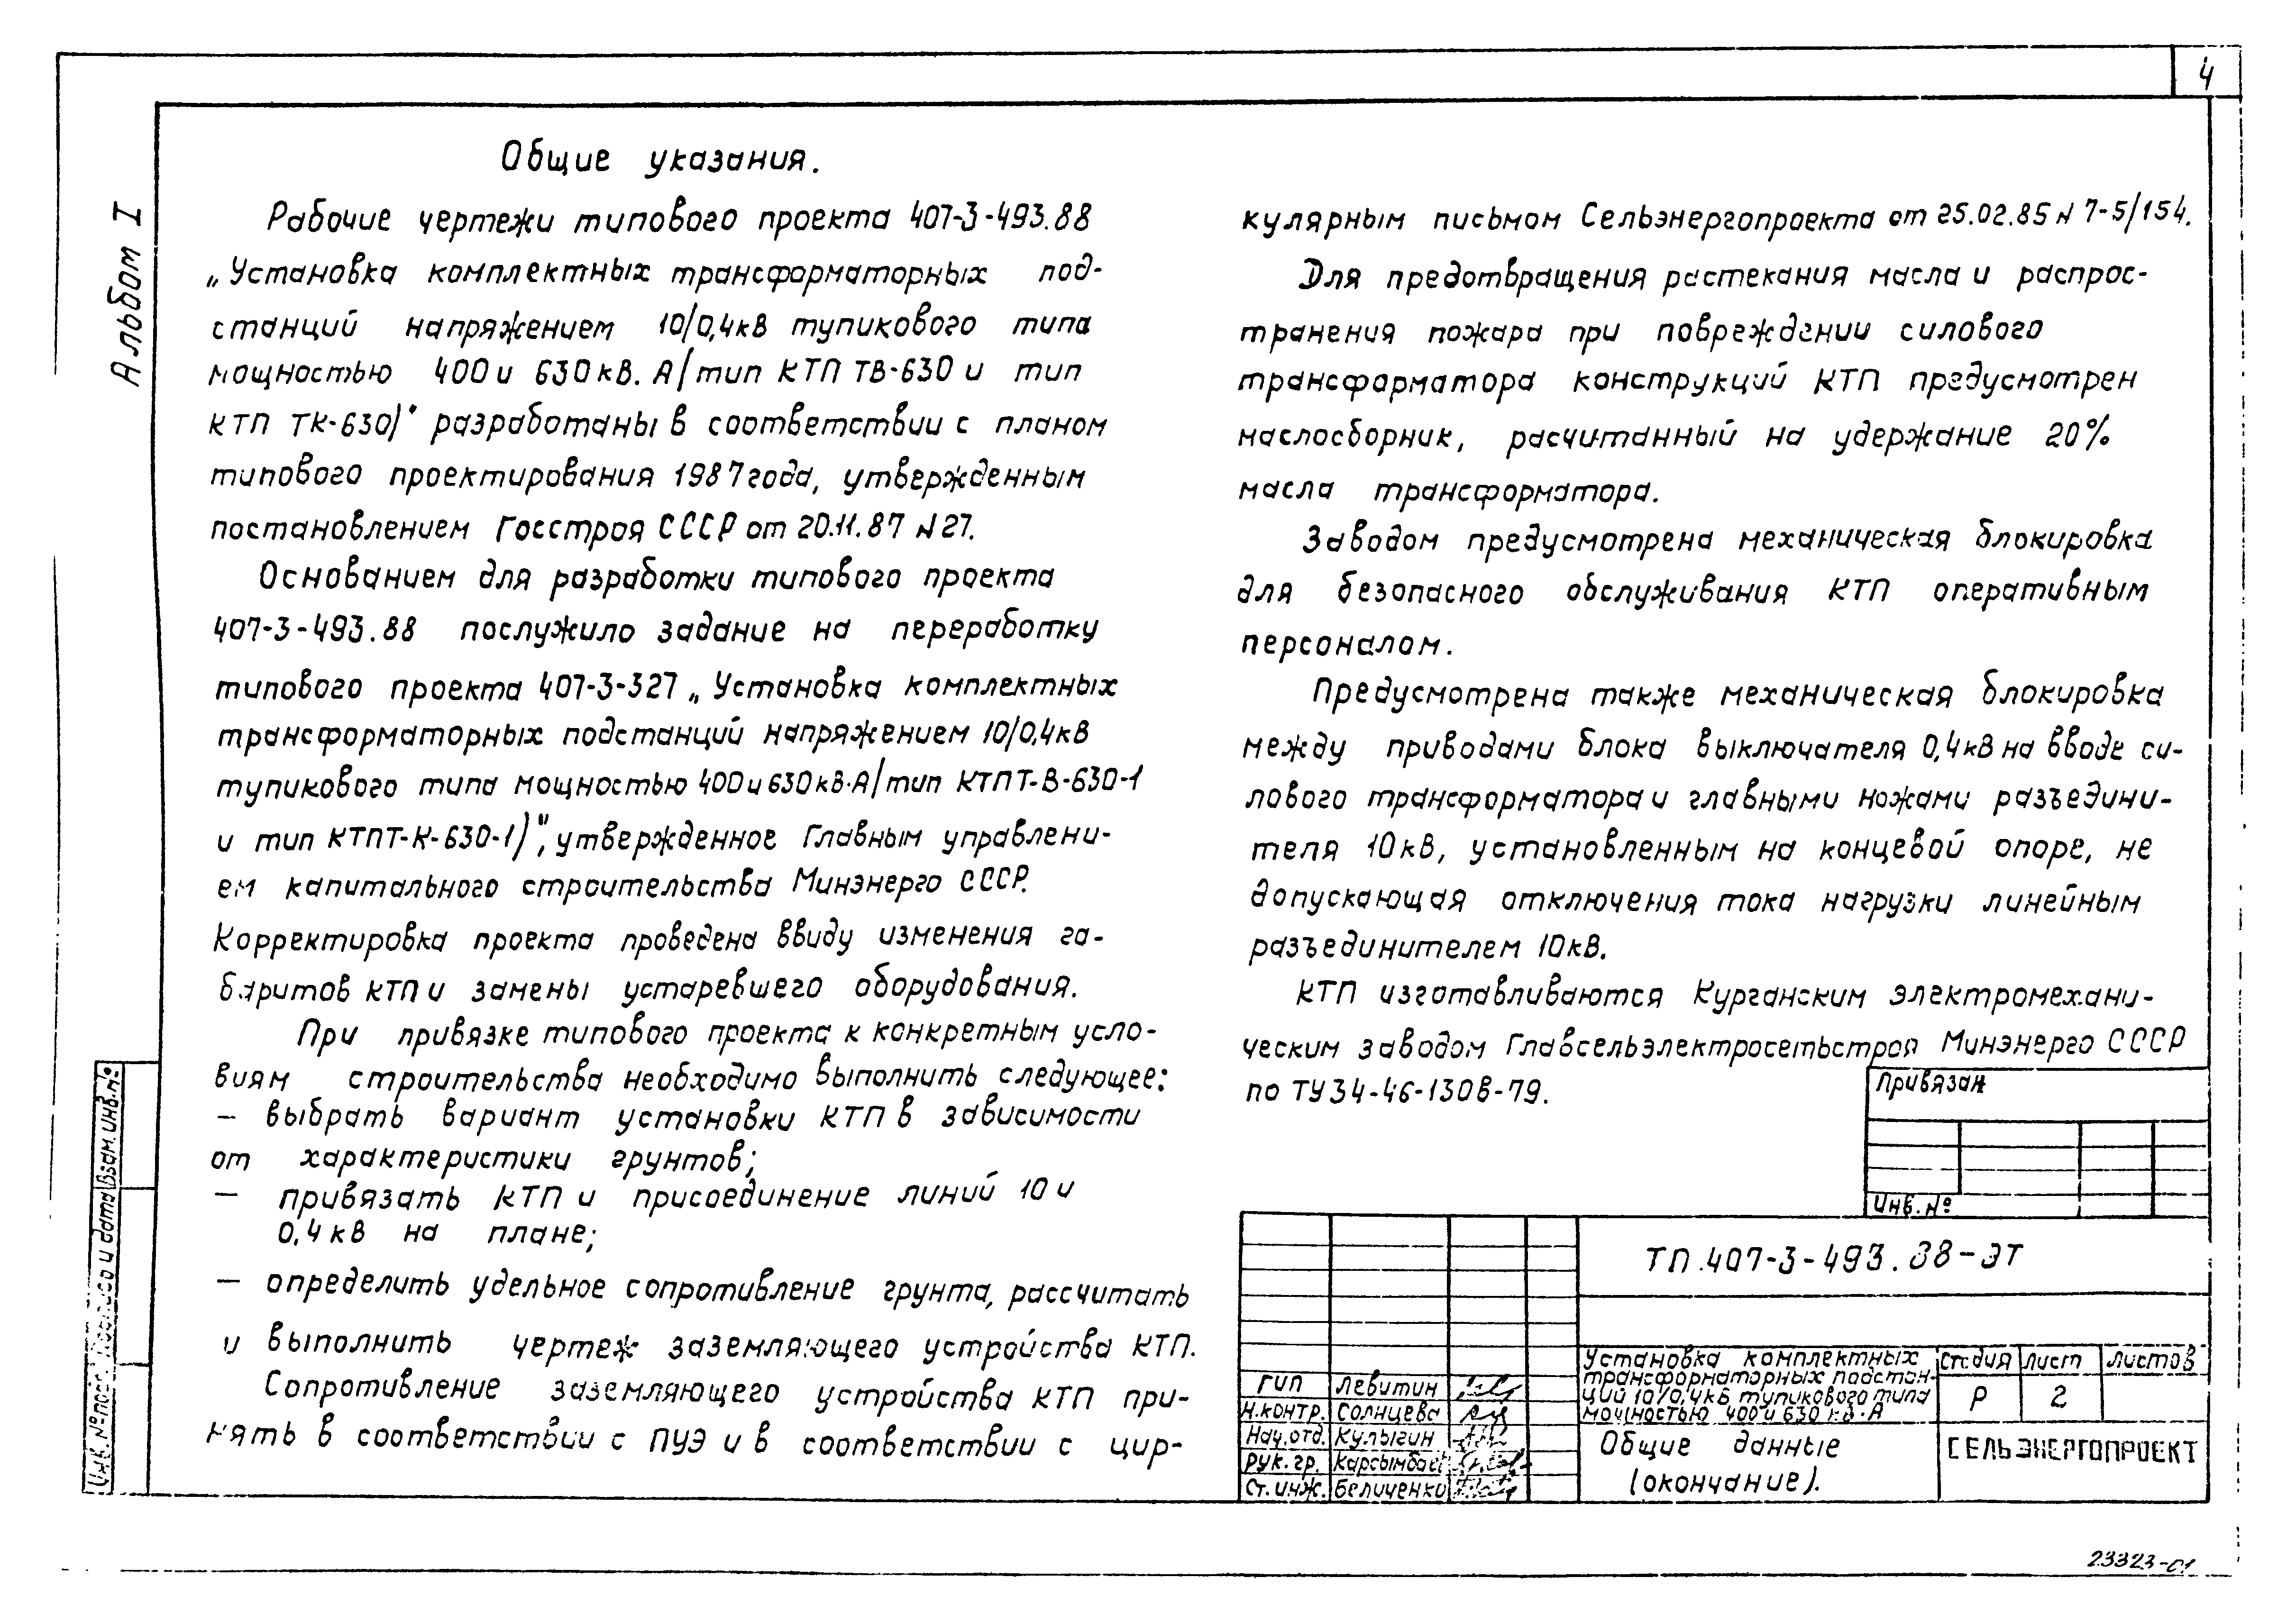 4
Альбом I
Общие указания.
Рабочие чертежи типового проекта 407-3-493.88
„Установка комплектных трансформаторных под-
станций напряжением 10/0,4кВ тупикового типа
мощностью 400 и 630 кВ.А/тип КТП ТВ-630 и тип
КТП ТК-630)" разработаны в соответствии с планом
типового проектирования 1987 года, утвержденным
постановлением Госстроя СССР от 20.11.87 N 27.
Основанием для разработки типового проекта
407-3-493.88 послужило задание на переработку
типового проекта 407-3-327 „Установка комплектных
трансформаторных подстанций напряжением 10/0,4кВ
тупикового типа мощностью 400 и 630 кВ·А/тип КТПТ-В-630-1
и тип КТПТ-К-630-1)", утвержденное Главным управлени-
ем капитального строительства Минэнерго СССР.
Корректировка проекта проведена ввиду изменения га-
баритов КТП и замены устаревшего оборудования.
При привязке типового проекта к конкретным усло-
виям строительства необходимо выполнить следующее:
— выбрать вариант установки КТП в зависимости
от характеристики грунтов;
— привязать КТП и присоединение линий 10 и
0,4 кВ на плане;
— определить удельное сопротивление грунта, рассчитать
и выполнить чертеж заземляющего устройства КТП.
Сопротивление заземляющего устройства КТП при-
нять в соответствии с ПУЭ и в соответствии с цир-
кулярным письмом Сельэнергопроекта от 25.02.85 N 7-5/154.
Для предотвращения растекания масла и распрос-
транения пожара при повреждении силового
трансформатора конструкций КТП предусмотрен
маслосборник, расчитанный на удержание 20%
масла трансформатора.
Заводом предусмотрена механическая блокировка
для безопасного обслуживания КТП оперативным
персоналом.
Предусмотрена также механическая блокировка
между приводами блока выключателя 0,4кВ на вводе си-
лового трансформатора и главными ножами разъедини-
теля 10 кВ, установленным на концевой опоре, не
допускающая отключения тока нагрузки линейным
разъединителем 10 кВ.
КТП изготавливаются Курганским электромехани-
ческим заводом Главсельэлектросетьстроя Минэнерго СССР
по ТУ 34-46-1308-79.
Привязан
Инв. №
ТП.407-3-493.88-ЭТ
Установка комплектных
трансформаторных подстан-
ций 10/0,4кВ тупикового типа
мощностью 400 и 630 кВ·А
Стадия Лист Листов
Р 2
Общие данные
(окончание).
СЕЛЬЭНЕРГОПРОЕКТ
ГИП Левитин
Н.контр. Солнцева
Нач.отд. Кулыгин
Рук.гр.
Ст.инж. Беличенко
Инв. № подл. Подпись и дата Взам. инв. №
23323-01